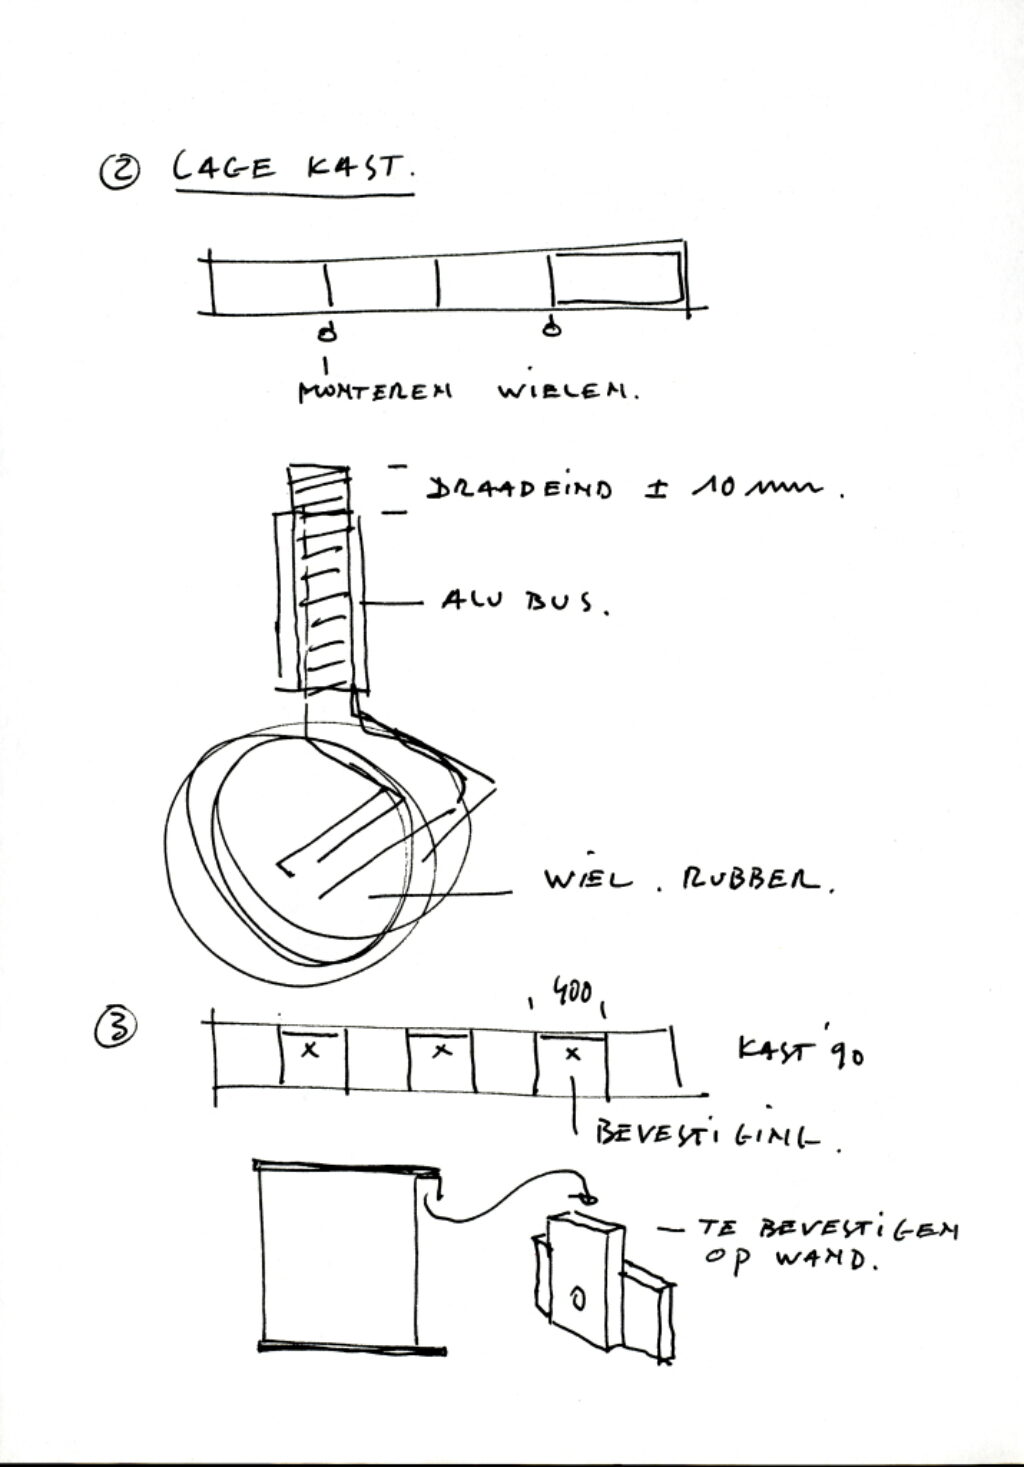 ② LAGE KAST.
MONTEREN WIELEN.
DRAADEIND ± 10 mm.
ALU BUS.
WIEL. RUBBER.
③
400
x x x
KAST '90
BEVESTIGING.
– TE BEVESTIGEN
OP WAND.